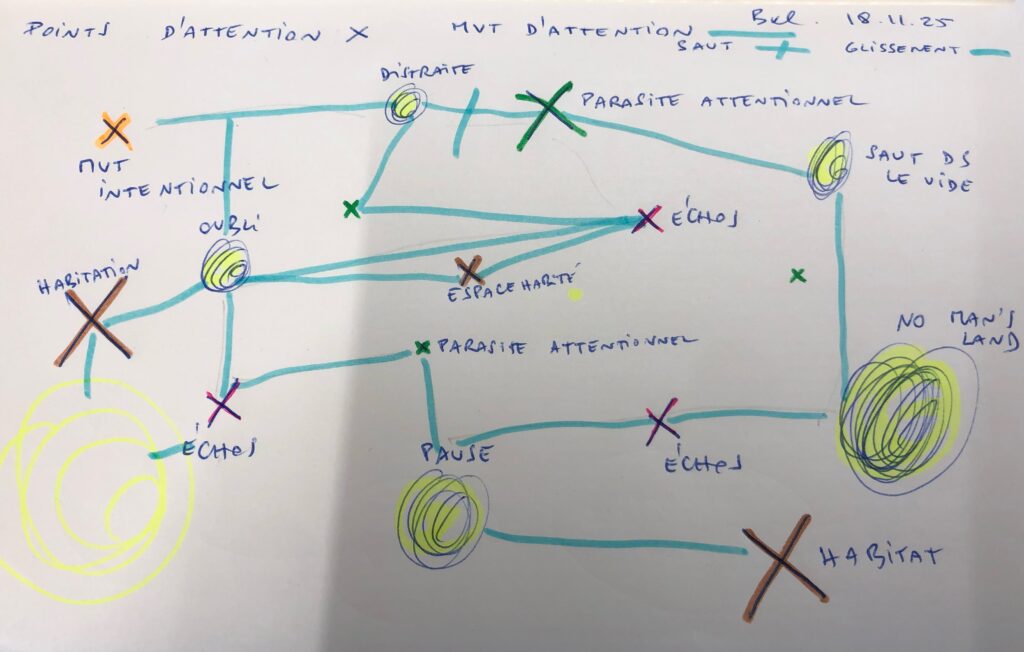 POINTS D'ATTENTION X MVT D'ATTENTION
18.11.25
SAUT GLISSEMENT
DISTRAITE
PARASITE ATTENTIONNEL
MVT
INTENTIONNEL
SAUT DS
LE VIDE
OUBLI
ÉCHOS
HABITATION
ESPACE HABITÉ
NO MAN'S
LAND
PARASITE ATTENTIONNEL
ÉCHOS
PAUSE
ÉCHOS
HABITAT